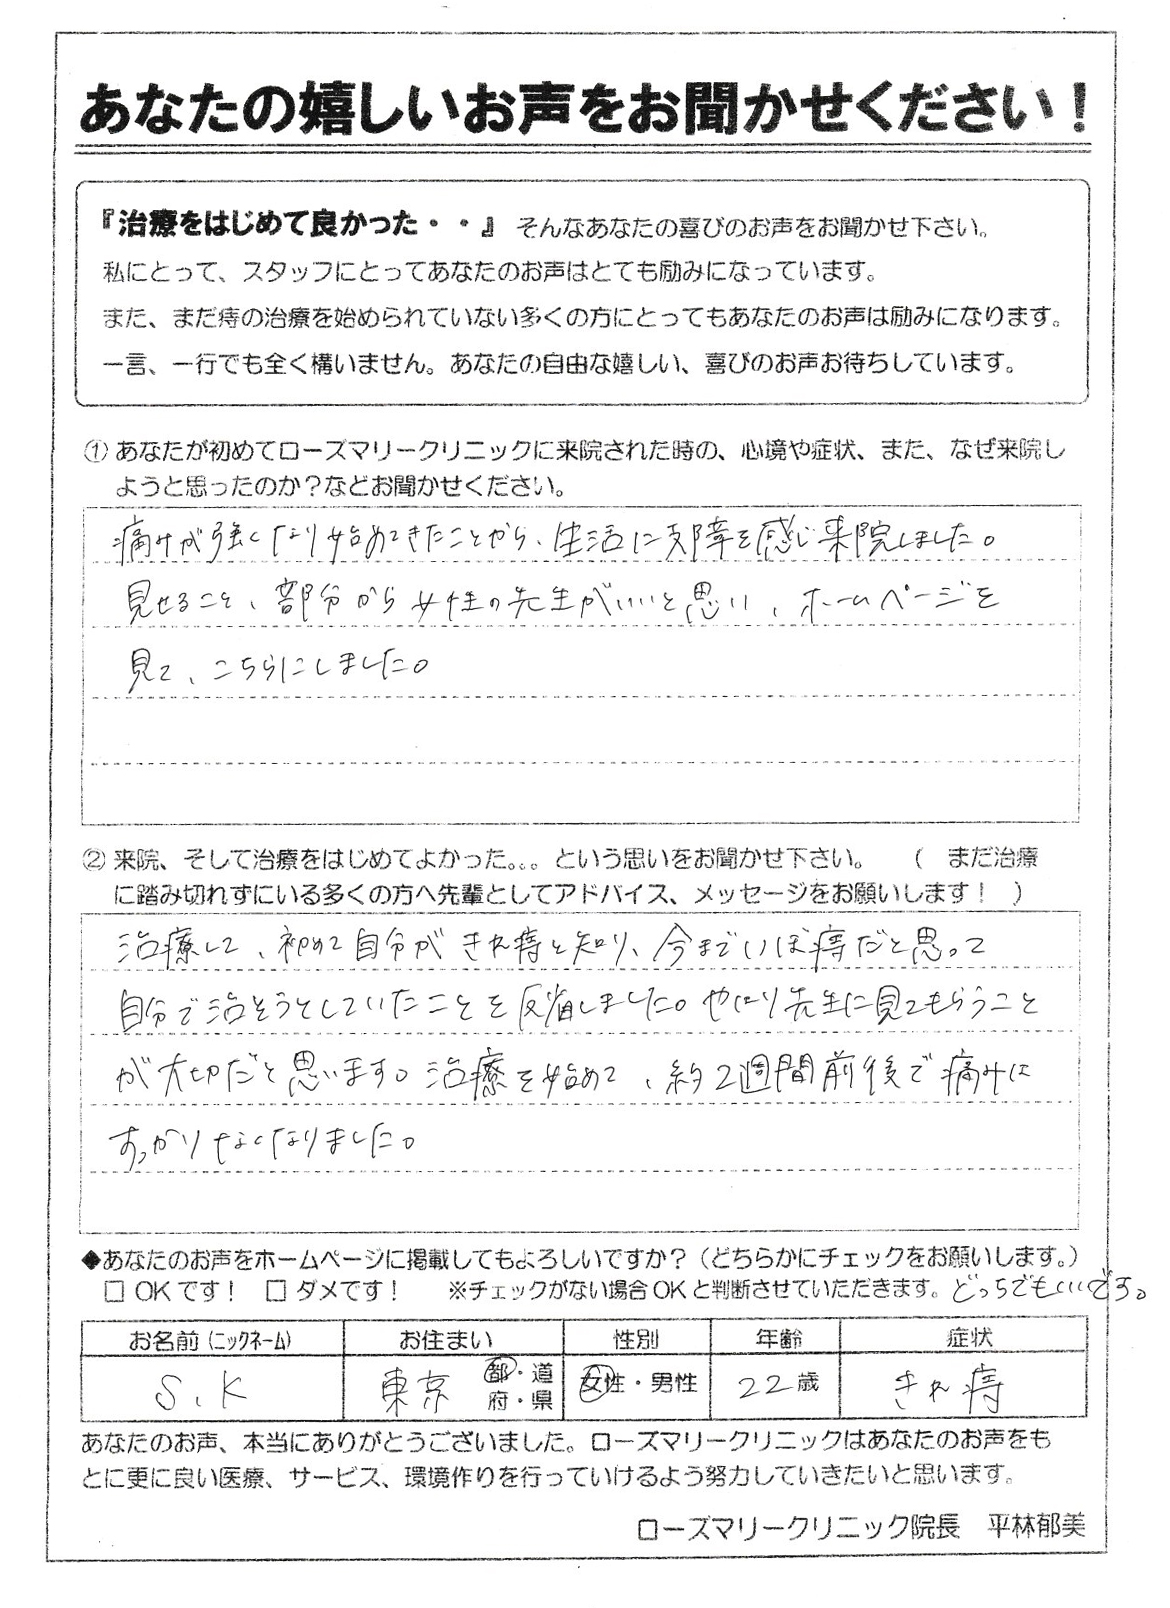 あなたの嬉しいお声をお聞かせください！
『治療をはじめて良かった・・』そんなあなたの喜びのお声をお聞かせ下さい。
私にとって、スタッフにとってあなたのお声はとても励みになっています。
また、まだ痔の治療を始められていない多くの方にとってもあなたのお声は励みになります。
一言、一行でも全く構いません。あなたの自由な嬉しい、喜びのお声お待ちしています。
①あなたが初めてローズマリークリニックに来院された時の、心境や症状、また、なぜ来院し
ようと思ったのか？などお聞かせください。
痛みが強くなり始めてきたことから、生活に支障を感じ来院しました。
見せること、部分から女性の先生がいいと思い、ホームページを
見て、こちらにしました。
②来院、そして治療をはじめてよかった。。。という思いをお聞かせ下さい。　（　まだ治療
に踏み切れずにいる多くの方へ先輩としてアドバイス、メッセージをお願いします！　）
治療して、初めて自分がきれ痔と知り、今までいぼ痔だと思って
自分で治そうとしていたことを反省しました。やはり先生に見てもらうこと
が大切だと思います。治療を始めて、約2週間前後で痛みは
すっかりなくなりました。
◆あなたのお声をホームページに掲載してもよろしいですか？（どちらかにチェックをお願いします。）
□ OKです！　□ ダメです！　※チェックがない場合OKと判断させていただきます。どっちでもいいです。
お名前（ニックネーム）　お住まい　性別　年齢　症状
S.K　東京　都・道　女性・男性　22歳　きれ痔
府・県
あなたのお声、本当にありがとうございました。ローズマリークリニックはあなたのお声をも
とに更に良い医療、サービス、環境作りを行っていけるよう努力していきたいと思います。
ローズマリークリニック院長　平林郁美